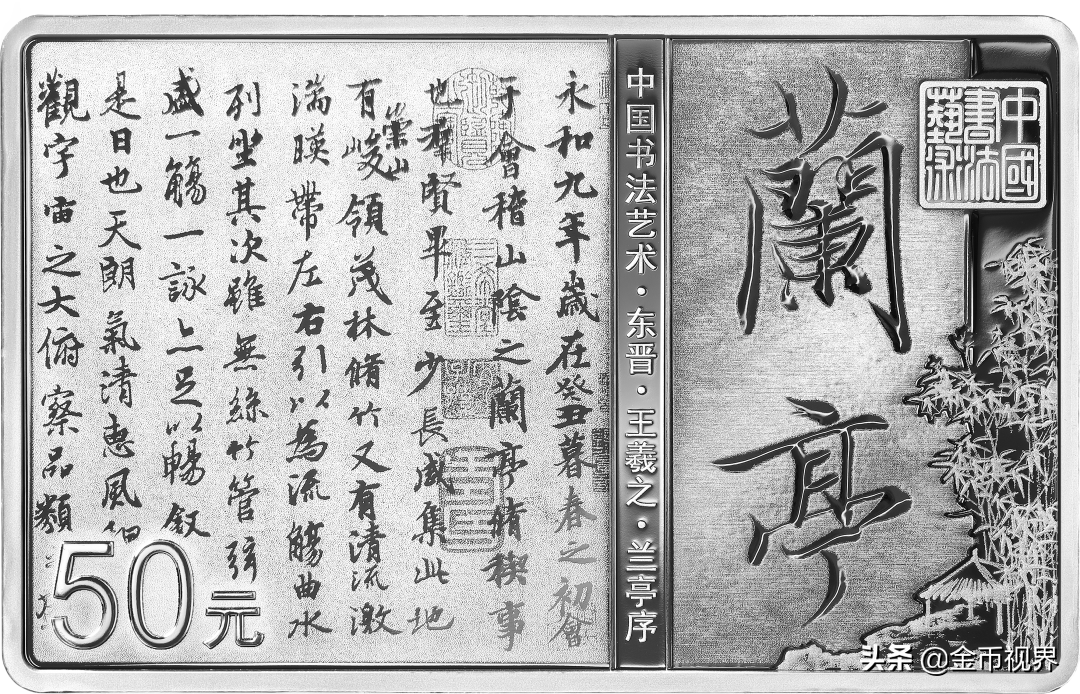 中國書法藝術
蘭亭
中国书法艺术·东晋·王羲之·兰亭序
永和九年歲在癸丑暮春之初會
于會稽山陰之蘭亭脩稧事
也羣賢畢至少長咸集此地
有崇山峻領茂林脩竹又有清流激
湍暎帶左右引以為流觴曲水
列坐其次雖無絲竹管弦
盛一觴一詠亦足以暢敘
是日也天朗氣清惠風和
觀宇宙之大俯察品類
50元
头条 @金币视界